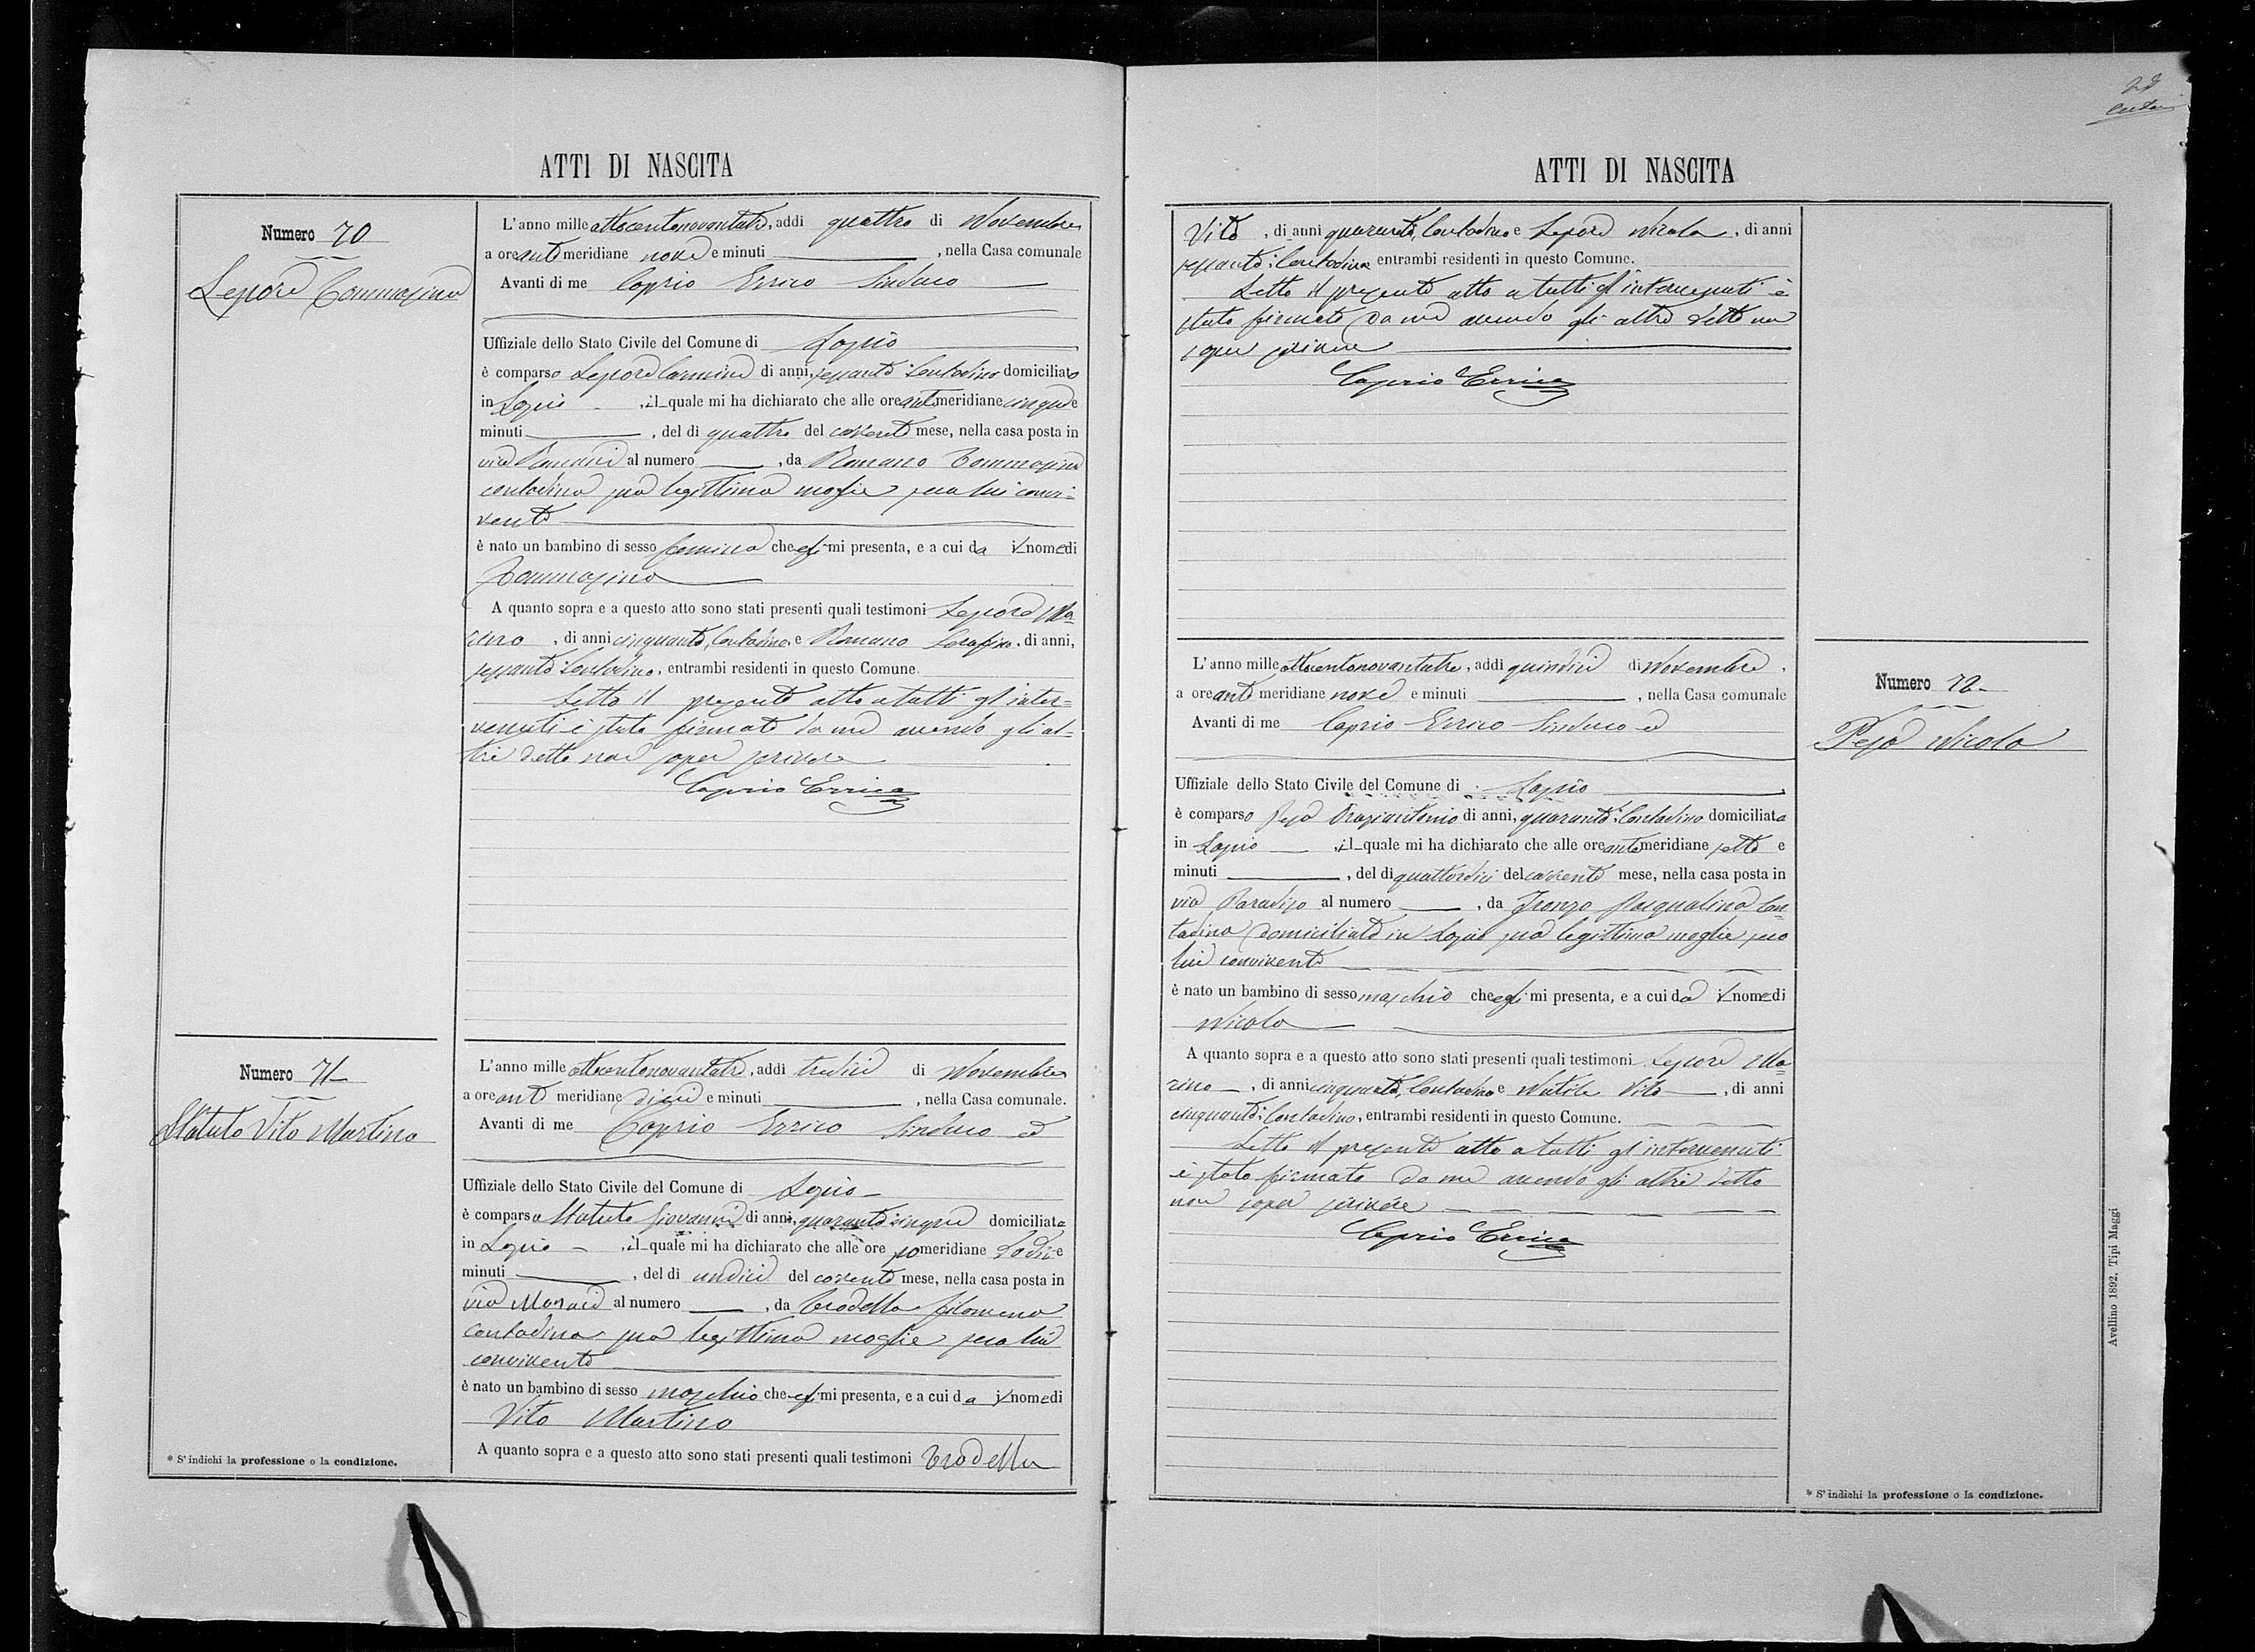 ATTI DI NASCITA
Numero 70
Lepore Tommasina
L'anno mille ottocentonovantatre, addì quattro di Novembre
a ore anti meridiane nove e minuti , nella Casa comunale
Avanti di me Caprio Errico Sindaco
Uffiziale dello Stato Civile del Comune di Lapio
è comparso Lepore Carmine di anni, sessanta contadino domiciliato
in Lapio , il quale mi ha dichiarato che alle ore antimeridiane cinque e
minuti , del dì quattro del corrente mese, nella casa posta in
via Romani al numero , da Romano Tommasina
contadina sua legittima moglie seco lui convi=
vente
è nato un bambino di sesso femina che egli mi presenta, e a cui da il nome di
Tommasina
A quanto sopra e a questo atto sono stati presenti quali testimoni Lepore Ma=
rino , di anni cinquanta, Contadino e Romano Serafino, di anni,
sessanta Contadino, entrambi residenti in questo Comune.
Letto il presente atto a tutti gl'inter=
venuti è stato firmato da me avendo gli al=
tri detto non saper scrivere
Caprio Errico
Numero 71
Statuto Vito Martino
L'anno mille ottocentonovantatre, addì tredici di Novembre
a ore anti meridiane dieci e minuti , nella Casa comunale.
Avanti di me Caprio Errico Sindaco ed
Uffiziale dello Stato Civile del Comune di Lapio
è comparso Statuto Giovanni di anni, quarantacinque domiciliato
in Lapio , il quale mi ha dichiarato che alle ore pomeridiane dodici e
minuti , del dì undici del corrente mese, nella casa posta in
via Monaci al numero , da Trodella Filomena
contadina sua legittima moglie seco lui
convivente
è nato un bambino di sesso maschio che egli mi presenta, e a cui da il nome di
Vito Martino
A quanto sopra e a questo atto sono stati presenti quali testimoni Trodella
* S'indichi la professione o la condizione.
28
ATTI DI NASCITA
Vito , di anni quaranta, Contadino e Lepore Nicola , di anni
sessanta: Contadino entrambi residenti in questo Comune.
Letto il presente atto a tutti gl'intervenuti è
stato firmato da me avendo gli altri detto non
saper scrivere
Caprio Errico
Numero 72
Pesa Nicola
L'anno mille ottocentonovantatre, addì quindici di Novembre
a ore anti meridiane nove e minuti , nella Casa comunale
Avanti di me Caprio Errico Sindaco ed
Uffiziale dello Stato Civile del Comune di Lapio
è comparso Pesa Oraziantonio di anni, quaranta: Contadino domiciliato
in Lapio , il quale mi ha dichiarato che alle ore antimeridiane sette e
minuti , del dì quattordici del corrente mese, nella casa posta in
via Paradiso al numero , da Ironzo Pasqualina Con=
tadina domiciliata in Lapio sua legittima moglie seco
lui convivente
è nato un bambino di sesso maschio che egli mi presenta, e a cui da il nome di
Nicola
A quanto sopra e a questo atto sono stati presenti quali testimoni Lepore Ma=
rino , di anni cinquanta, Contadino e Nutile Vito , di anni
cinquanta: Contadino, entrambi residenti in questo Comune.
Letto il presente atto a tutti gl'intervenuti
è stato firmato da me avendo gli altri detto
non saper scrivere
Caprio Errico
* S'indichi la professione o la condizione.
Avellino 1892. Tipi Maggi